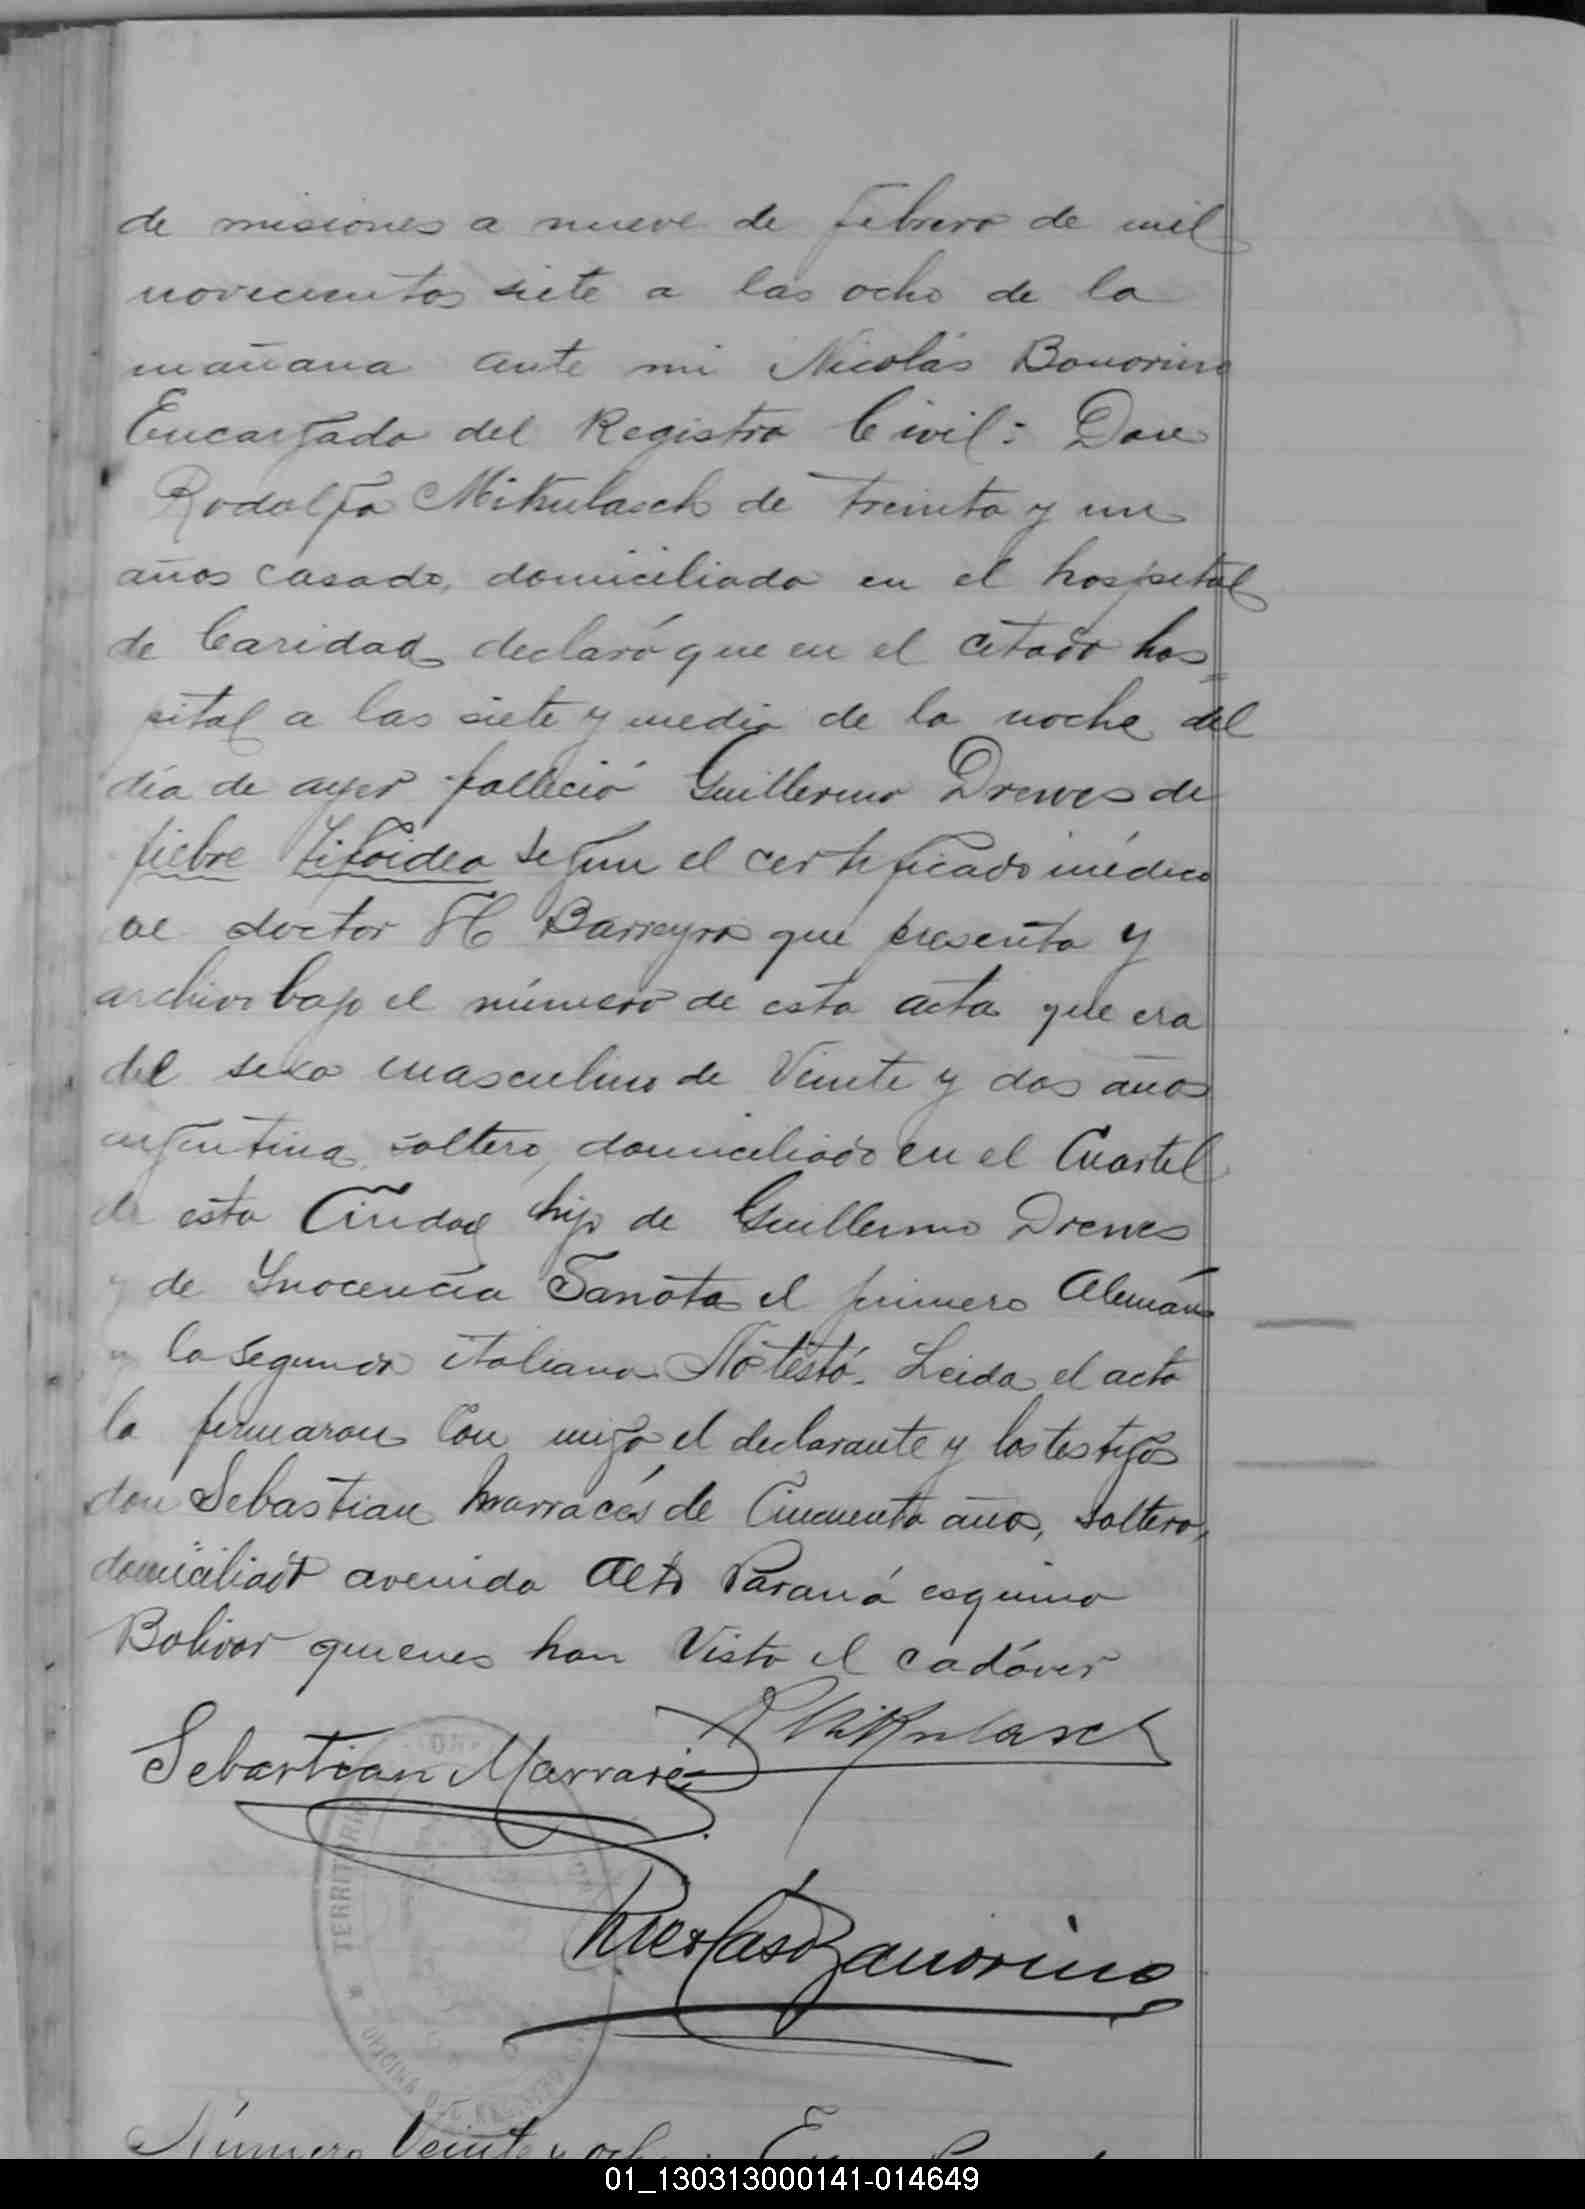 de misiones a nueve de febrero de mil
novecientos siete a las ocho de la
mañana ante mi Nicolás Bonorino
Encargado del Registro Civil: Don
Rodolfo Mikulasch de treinta y un
años casado, domiciliado en el hospital
de Caridad declaró que en el citado hos=
pital a las siete y media de la noche del
día de ayer falleció Guillermo Drewes de
fiebre tifoidea segun el certificado médico
del doctor H Barreyro que presenta y
archivo bajo el número de esta acta que era
del sexo masculino de Veinte y dos años
argentino, soltero, domiciliado en el Cuartel
de esta Ciudad hijo de Guillermo Drewes
y de Ynocencia el primero Alemán
y la segunda italiana No testó. Leida el acta
la firmaron Con migo el declarante y los testigos
don Sebastian Marracés de Cincuenta años, soltero,
domiciliado avenida Alto Paraná esquina
Bolivar quienes han Visto el cadáver
R Mikulasch
Sebastian Marracés
Nicolás Bonorino
TERRITORIO
OFICINA DEL REGISTRO
Número Veinte y ocho:
01_130313000141-014649